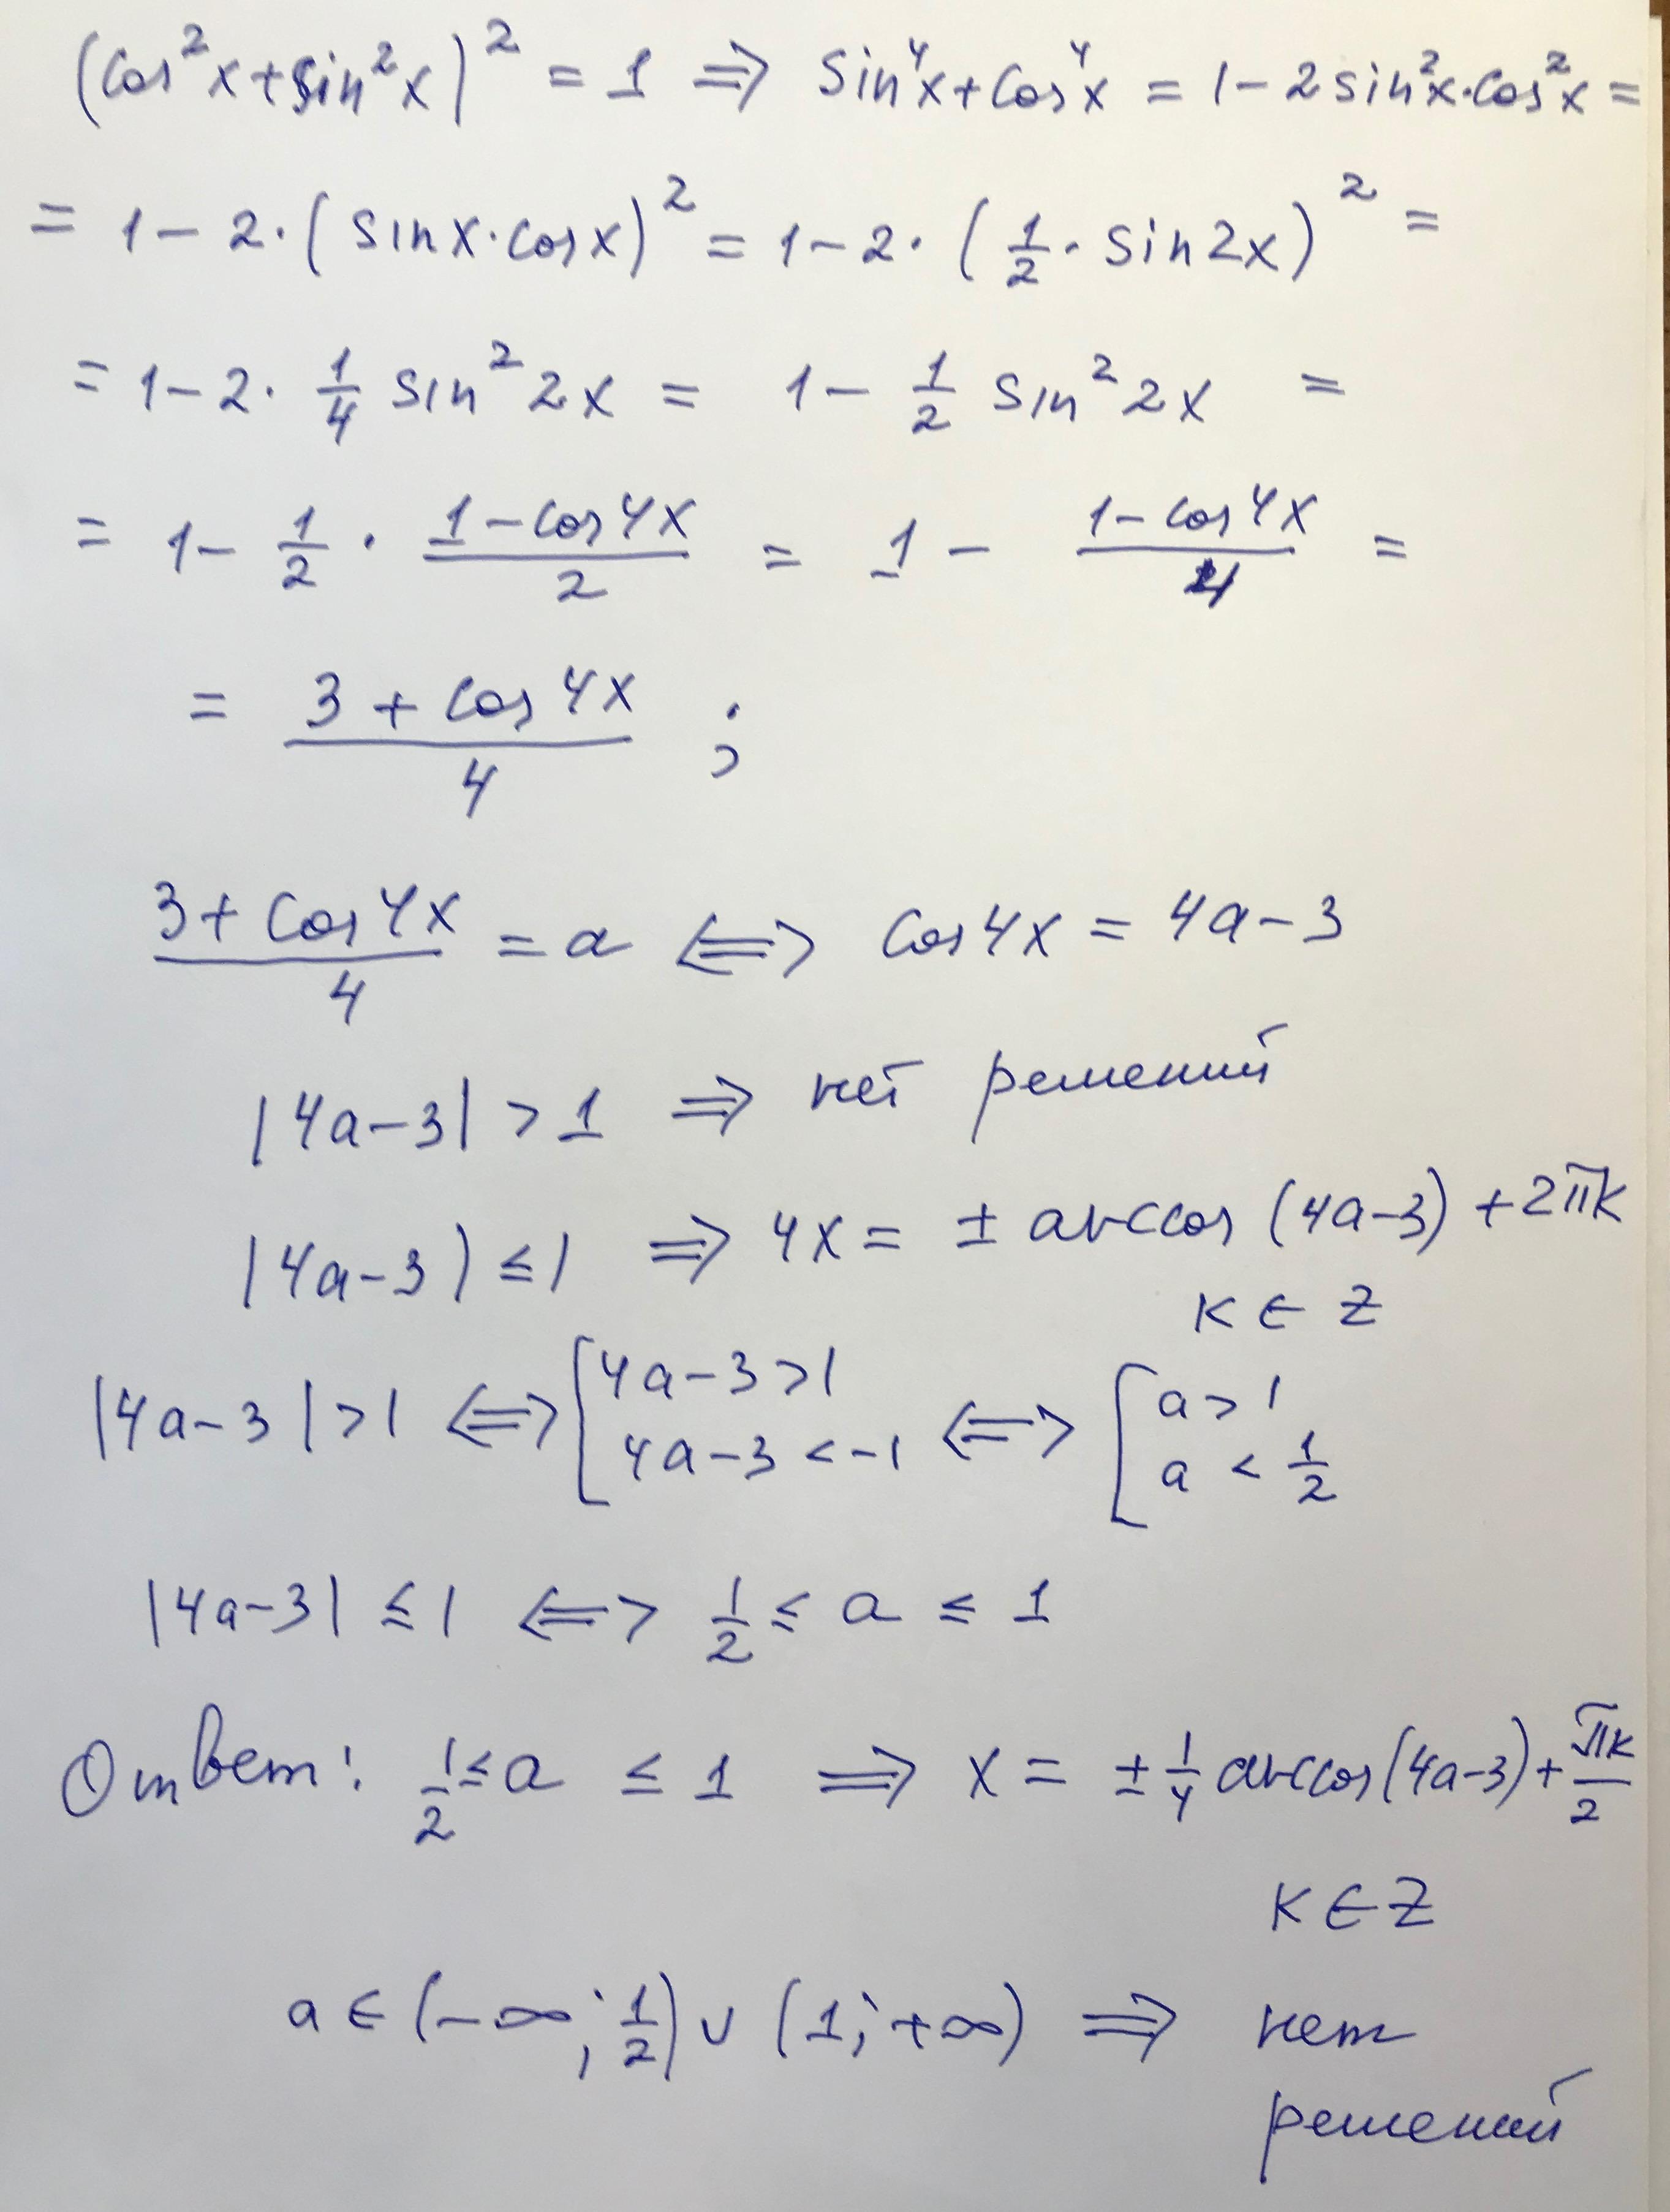 (cos²x+sin²x)² = 1 ⇒ sin⁴x+cos⁴x = 1−2sin²x·cos²x =
= 1−2·(sinx·cosx)² = 1−2·(1/2·sin2x)² =
= 1−2·1/4 sin²2x = 1−1/2 sin²2x =
= 1−1/2·(1−cos4x)/2 = 1−(1−cos4x)/4 =
= (3+cos4x)/4 ;
(3+cos4x)/4 = a ⇔ cos4x = 4a−3
|4a−3| > 1 ⇒ нет решений
|4a−3| ≤ 1 ⇒ 4x = ± arccos (4a−3) + 2πk
k ∈ Z
|4a−3| > 1 ⇔ [4a−3 > 1 4a−3 < −1 ⇔ [a > 1 a < 1/2
|4a−3| ≤ 1 ⇔ 1/2 ≤ a ≤ 1
Ответ: 1/2 ≤ a ≤ 1 ⇒ x = ± 1/4 arccos(4a−3) + πk/2
k ∈ Z
a ∈ (−∞; 1/2) ∪ (1; +∞) ⇒ нет
решений